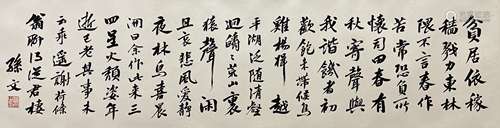 貧居依稼
穡戮力東林
隈不言春作
苦常恐負所
懷司田眷有
秋寄聲與
我諧饑者初
歡飽束帶候鳴
雞揚楫越
平湖泛隨清壑
迴鬱鬱荒山裏
猿聲閑
且哀悲風愛靜
夜林鳥喜晨
開曰余作此來三
四星火頹姿年
逝已老其事未
云乖遙謝荷蓧
翁聊得從君棲
孫文